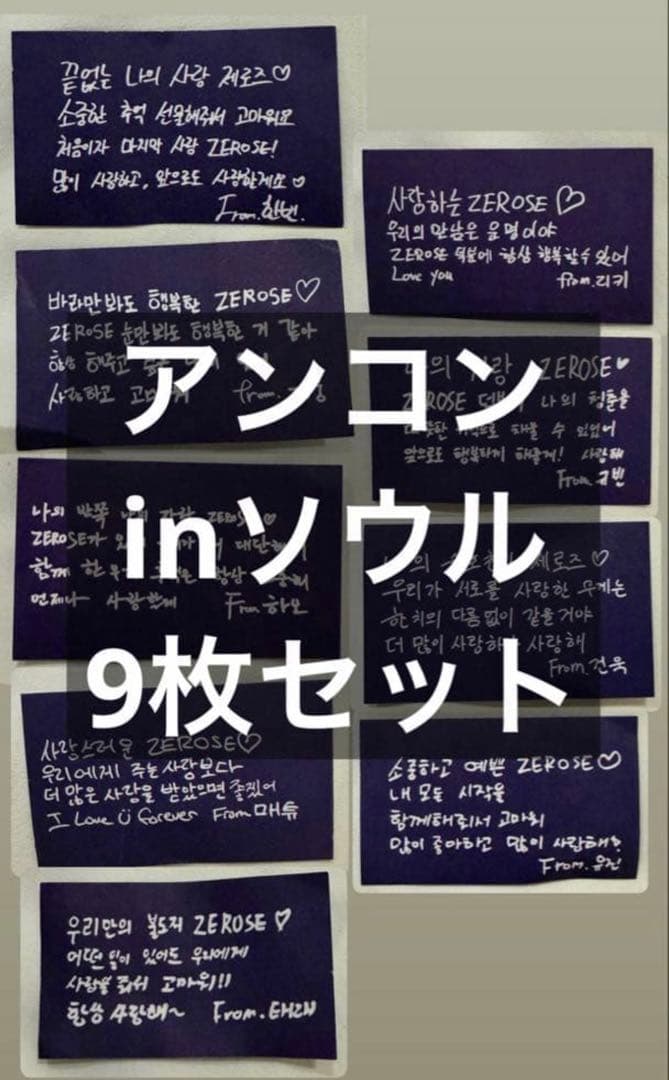 끝없는 나의 사랑 제로즈♡
소중한 추억 선물해줘서 고마워요
처음이자 마지막 사랑 ZEROSE!
많이 사랑하고, 앞으로도 사랑할게요♡
From.한빈.
사랑하는 ZEROSE♡
우리의 만남은 운명이야
ZEROSE 덕분에 항상 행복할 수 있어
Love you from.리키
바라만봐도 행복한 ZEROSE♡
ZEROSE 눈만봐도 행복한 거 같아
항상 해주고
사랑하고 from.
ZEROSE♥
ZEROSE 나의 청춘을
채울 수 있었어
앞으로도 행복하게 해줄게! 사랑해
From.규빈
나의 반쪽 ZEROSE♡
ZEROSE가
함께 한
언제나 사랑할게 From 하오
제로즈♡
우리가 서로를 사랑한 무게는
한치의 다름없이 같을거야
더 많이 사랑해
From.건욱
アンコン
inソウル
9枚セット
사랑스러운 ZEROSE♡
우리에게 주는 사랑보다
더 많은 사랑을 받았으면 좋겠어
I Love U forever From 매튜
소중하고 예쁜 ZEROSE♡
내 모든 시작을
함께해줘서 고마워
많이 좋아하고 많이 사랑해?
From.유진
우리만의 ZEROSE♡
어떤 일이 있어도 우리에게
사랑을 줘서 고마워!!
항상 사랑해~ From.